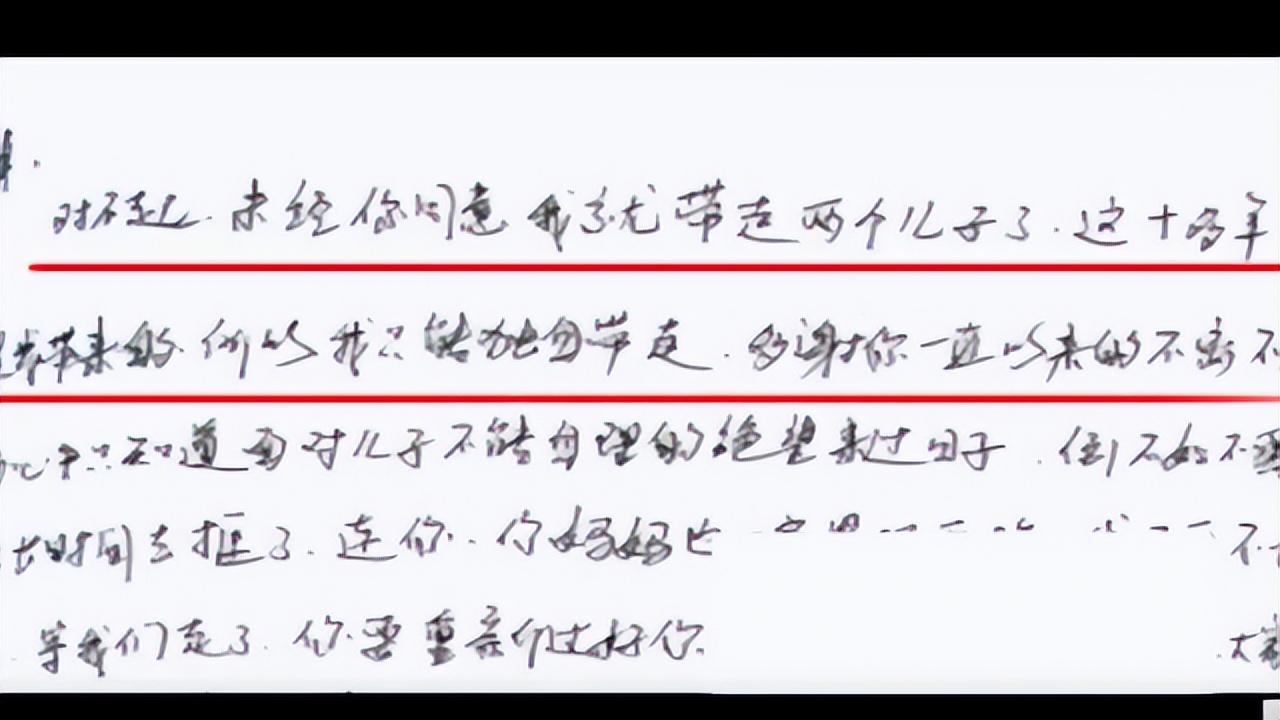 对不起.未经你同意我就带走两个儿子了.这十多年
我带来的.所以我只能独自带走.多谢你一直以来的不离不
只知道面对儿子不能自理的绝望来过日子.倒不如不要
时间去拖了.连你.你妈妈也 不
等我们走了.你要重新过好你 .大家